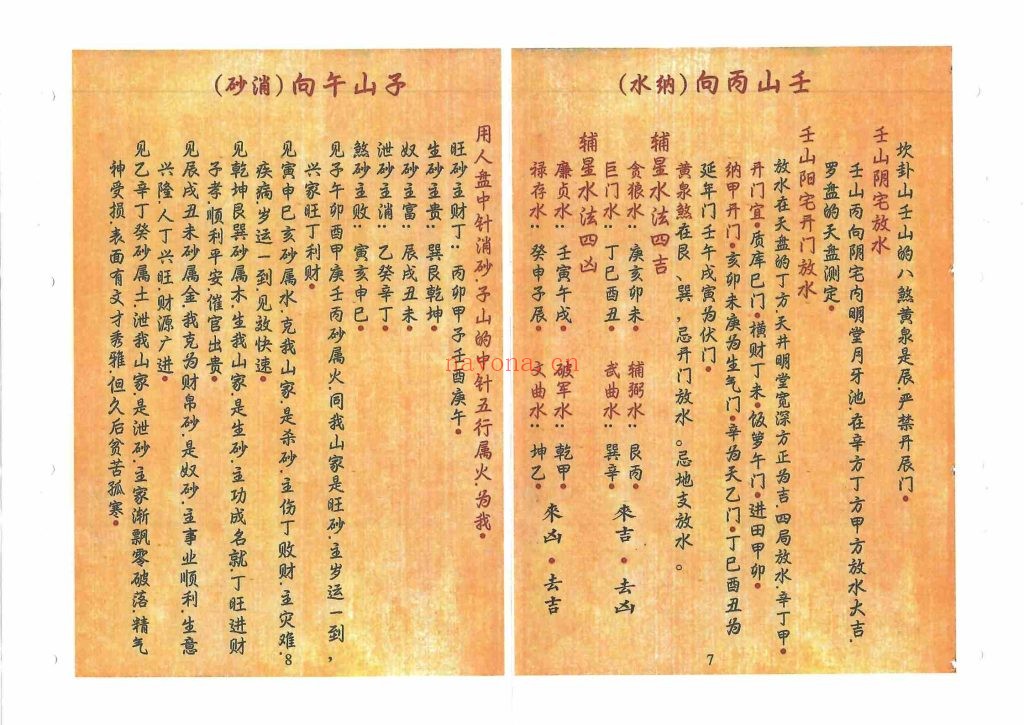 壬山丙向(纳水)
坎卦山壬山的八煞黄泉是辰.严禁开辰门.
壬山阴宅放水
壬山丙向阴宅内明堂月牙池.在辛方丁方甲方放水大吉.
罗盘的天盘测定.
壬山阳宅开门放水
放水在天盘的丁方.天井明堂宽深方正为吉.四局放水.辛丁甲.
开门宜.质库巳门.横财丁未.饭箩午门.进田甲卯.
纳甲开门.亥卯未庚为生气门.辛为天乙门.丁巳酉丑为
延年门壬午戌寅为伏门.
黄泉煞在艮、巽,忌开门放水。忌地支放水。
辅星水法四吉
贪狼水:庚亥卯未. 辅弼水:艮丙.
巨门水:丁巳酉丑. 武曲水:巽辛. 来吉.去凶
辅星水法四凶
廉贞水:壬寅午戌. 破军水:乾甲.
禄存水:癸申子辰. 文曲水:坤乙. 来凶.去吉
7
子山午向(消砂)
用人盘中针消砂子山的中针五行属火为我.
旺砂主财丁:丙卯甲子壬酉庚午.
生砂主贵:巽艮乾坤.
奴砂主富:辰戌丑未.
泄砂主消:乙癸辛丁.
煞砂主败:寅亥申巳.
见子午卯酉甲庚壬丙砂属火.同我山家是旺砂.主岁运一到,
兴家旺丁利财.
见寅申巳亥砂属水.克我山家.是杀砂.主伤丁败财.主灾难.
疾病.岁运一到见效快速.
见乾坤艮巽砂属木.生我山家.是生砂.主功成名就.丁旺进财
子孝.顺利平安.催官出贵.
见辰戌丑未砂属金.我克为财帛砂.是奴砂.主事业顺利.生意
兴隆.人丁兴旺.财源广进.
见乙辛丁癸砂属土.泄我山家.是泄砂.主家渐飘零破落.精气
神受损.表面有文才秀雅.但久后贫苦孤寒.
8
navona.cn